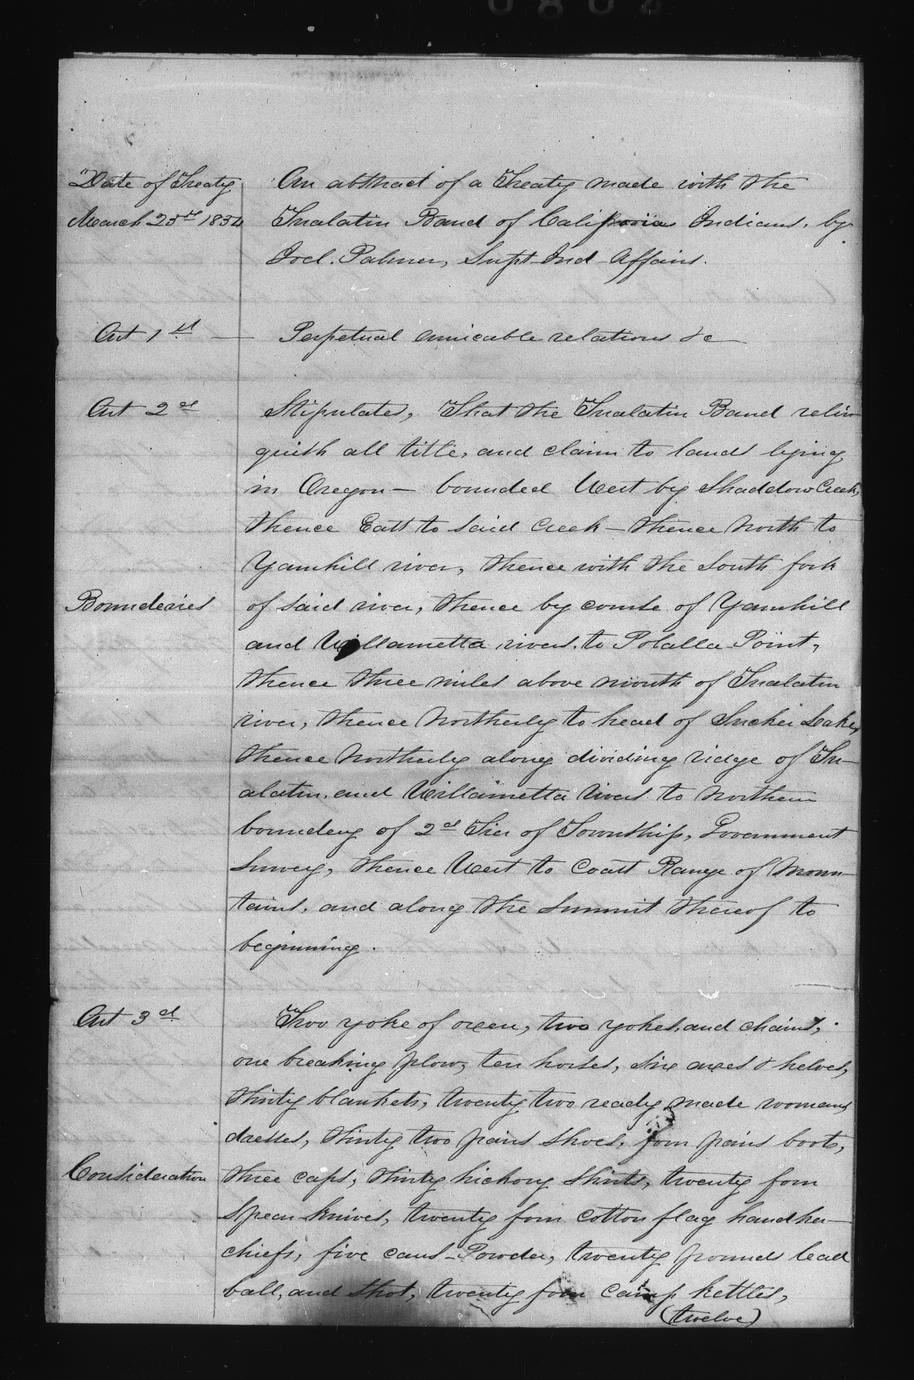 Date of Treaty
March 25th 1854
An abstract of a Treaty made with the
Tualatin Band of Calipooias Indians, by
Joel. Palmer, Supt Ind Affairs.
Art 1st — Perpetual amicable relations &c —
Art 2d
Stipulates, That the Tualatin Band relin
quish all title, and claim to lands lying
in Oregon — bounded West by Shaddow Creek,
thence East to said Creek — thence North to
Yamhill river, thence with the South fork
Bounderies
of said river, thence by course of Yamhill
and Willametta rivers, to Polalla Point,
thence three miles above mouth of Tualatin
river, thence Northerly to head of Sucker Lake,
thence Northerly along dividing ridge of Tu—
alatin, and Willametta rivers to Northern
boundery of 2d Tier of Township, Government
Survey, thence West to Coast Range of Moun—
tains, and along the Summit thereof to
beginning.
Art 3d
Two yoke of oxen, two yokes, and chains,
one breaking plow, ten horses, six axes & helves,
thirty blankets, twenty two ready made womans
dresses, thirty two pairs shoes, four pairs boots,
Consideration
three caps, thirty hickory shirts, twenty four
Spear knives, twenty four cotton flag handker—
chiefs, five cans Powder, twenty pounds lead
ball, and shot, twenty four camp kettles,
(twelve)